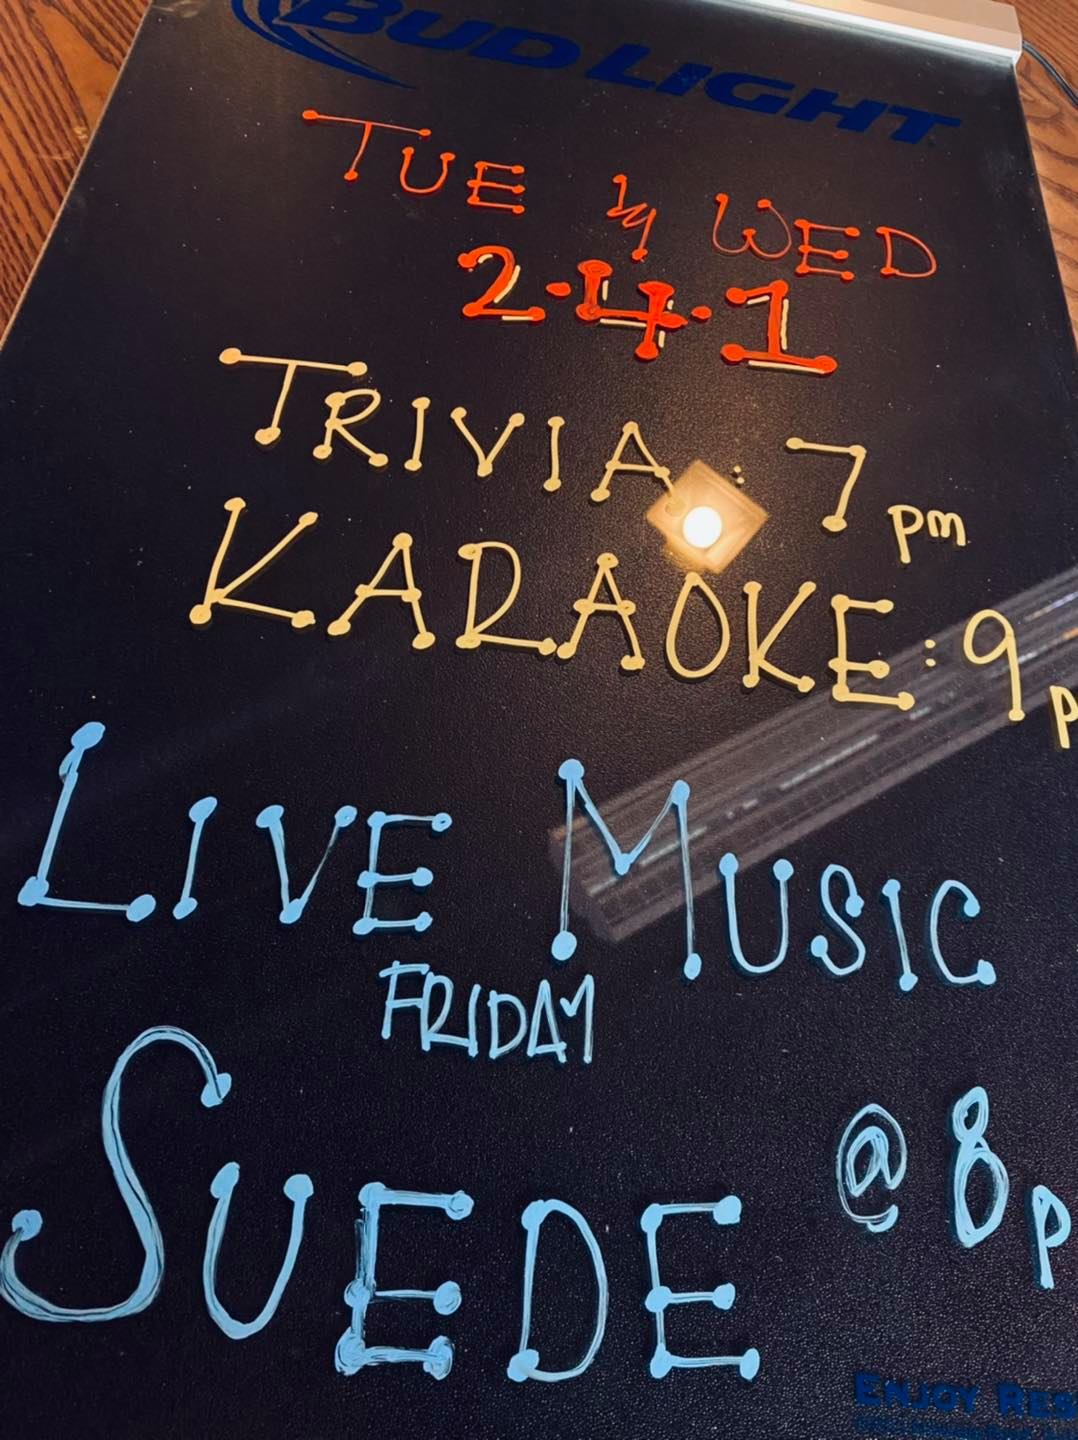 BUD LIGHT
TUE & WED
2·4·1
TRIVIA : 7 pm
KARAOKE : 9 p
LIVE MUSIC
FRIDAY
SUEDE @ 8 p
ENJOY RES